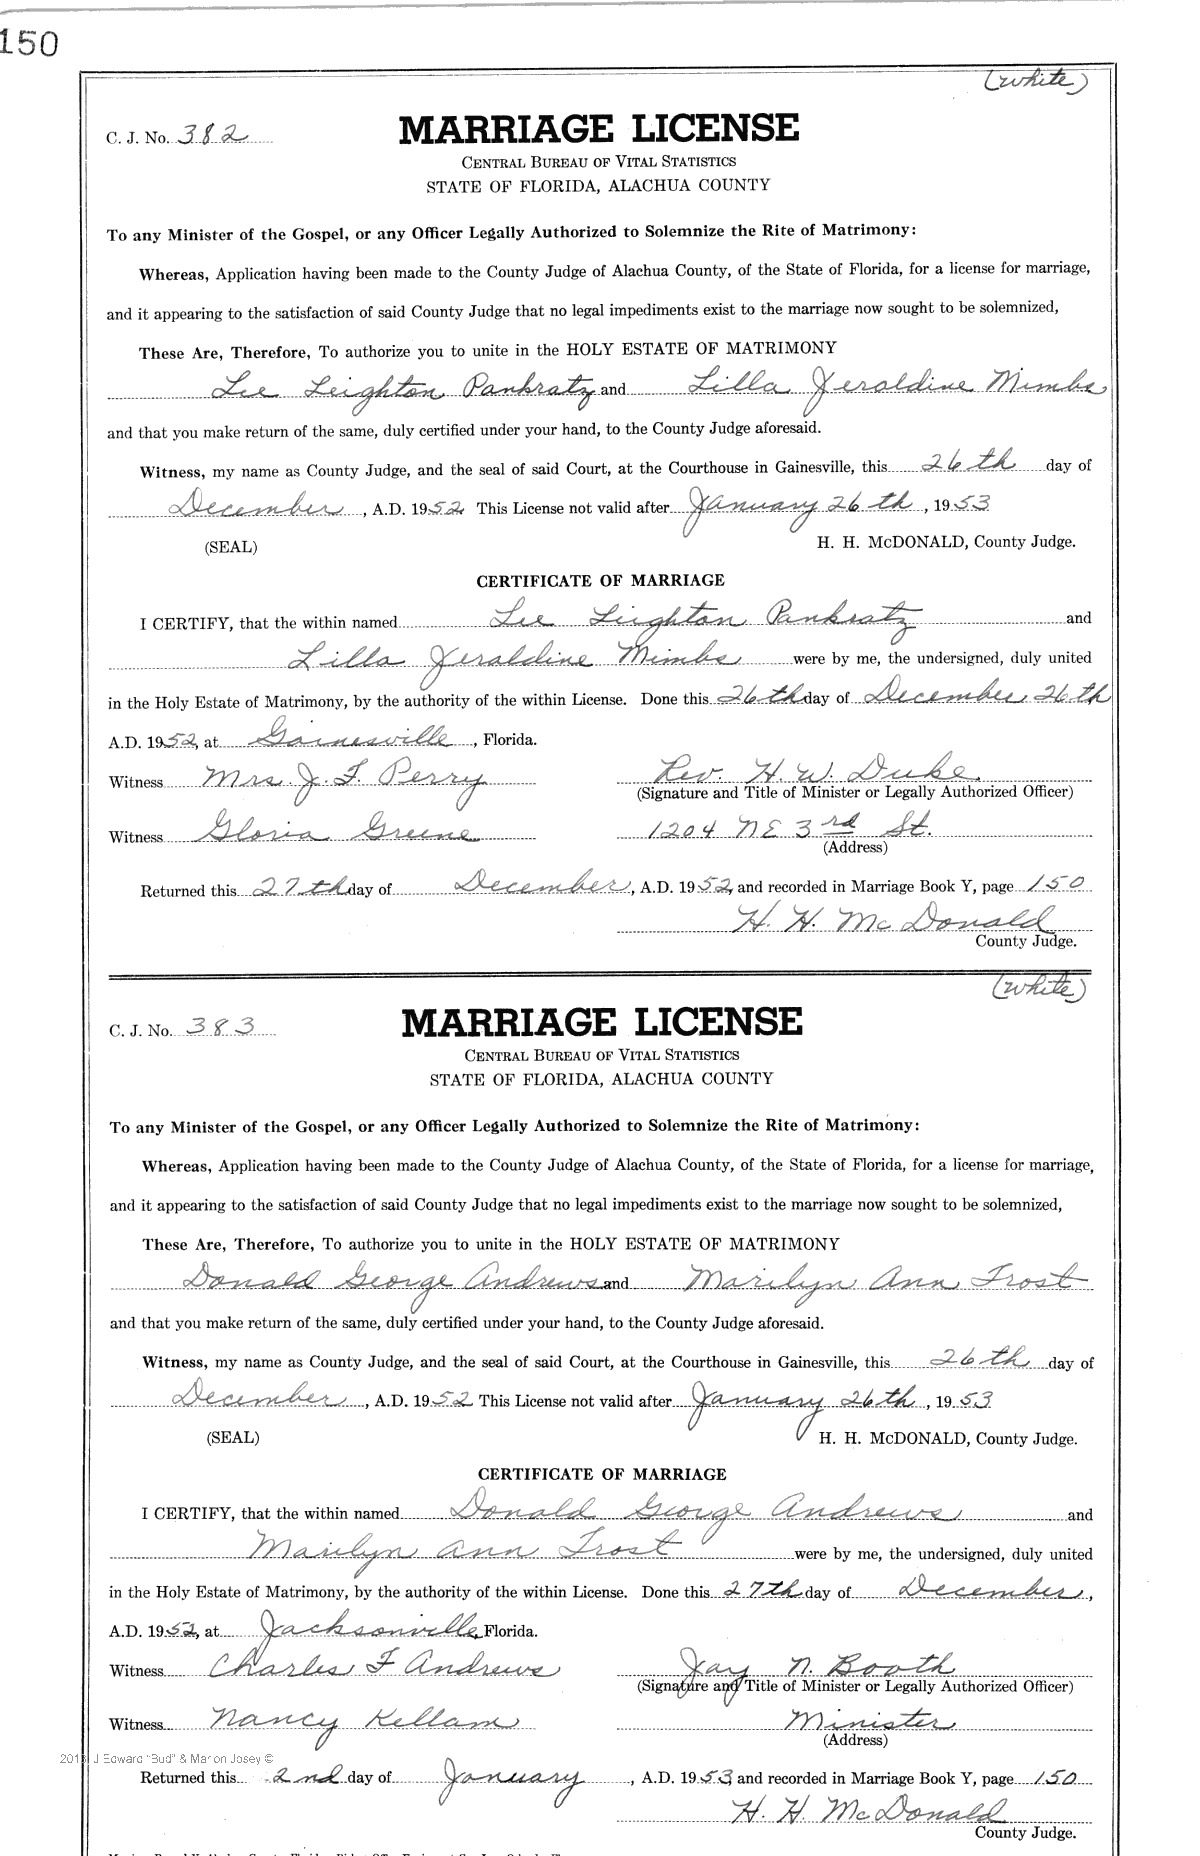 150
(white)
C. J. No. 382
MARRIAGE LICENSE
CENTRAL BUREAU OF VITAL STATISTICS
STATE OF FLORIDA, ALACHUA COUNTY
To any Minister of the Gospel, or any Officer Legally Authorized to Solemnize the Rite of Matrimony:
Whereas, Application having been made to the County Judge of Alachua County, of the State of Florida, for a license for marriage,
and it appearing to the satisfaction of said County Judge that no legal impediments exist to the marriage now sought to be solemnized,
These Are, Therefore, To authorize you to unite in the HOLY ESTATE OF MATRIMONY
Lee Leighton Pankratz and Lilla Jeraldine Mimbs
and that you make return of the same, duly certified under your hand, to the County Judge aforesaid.
Witness, my name as County Judge, and the seal of said Court, at the Courthouse in Gainesville, this 26th day of
December, A.D. 1952. This License not valid after January 26th, 1953
(SEAL) H. H. McDONALD, County Judge.
CERTIFICATE OF MARRIAGE
I CERTIFY, that the within named Lee Leighton Pankratz and
Lilla Jeraldine Mimbs were by me, the undersigned, duly united
in the Holy Estate of Matrimony, by the authority of the within License. Done this 26th day of December 26th
A.D. 1952, at Gainesville, Florida.
Witness Mrs. J. F. Perry Rev. H. W. Duke.
(Signature and Title of Minister or Legally Authorized Officer)
Witness Gloria Greene 1204 NE 3rd St.
(Address)
Returned this 27th day of December, A.D. 1952, and recorded in Marriage Book Y, page 150
H. H. McDonald
County Judge.
(white)
C. J. No. 383
MARRIAGE LICENSE
CENTRAL BUREAU OF VITAL STATISTICS
STATE OF FLORIDA, ALACHUA COUNTY
To any Minister of the Gospel, or any Officer Legally Authorized to Solemnize the Rite of Matrimony:
Whereas, Application having been made to the County Judge of Alachua County, of the State of Florida, for a license for marriage,
and it appearing to the satisfaction of said County Judge that no legal impediments exist to the marriage now sought to be solemnized,
These Are, Therefore, To authorize you to unite in the HOLY ESTATE OF MATRIMONY
Donald George Andrews and Marilyn Ann Trost
and that you make return of the same, duly certified under your hand, to the County Judge aforesaid.
Witness, my name as County Judge, and the seal of said Court, at the Courthouse in Gainesville, this 26th day of
December, A.D. 1952 This License not valid after January 26th, 1953
(SEAL) H. H. McDONALD, County Judge.
CERTIFICATE OF MARRIAGE
I CERTIFY, that the within named Donald George Andrews and
Marilyn Ann Trost were by me, the undersigned, duly united
in the Holy Estate of Matrimony, by the authority of the within License. Done this 27th day of December,
A.D. 1952, at Jacksonville, Florida.
Witness Charles F Andrews Jay N. Booth
(Signature and Title of Minister or Legally Authorized Officer)
Witness Nancy Kellam Minister
(Address)
J Edward "Bud" & Marion Josey ©
Returned this 2nd day of January, A.D. 1953, and recorded in Marriage Book Y, page 150
H. H. McDonald
County Judge.